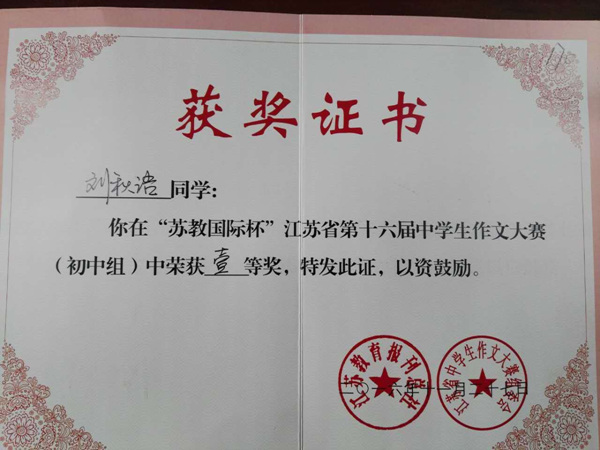 获奖证书
刘秋语 同学：
你在“苏教国际杯”江苏省第十六届中学生作文大赛
（初中组）中荣获 壹 等奖，特发此证，以资鼓励。
江苏教育报刊总社
江苏省中学生作文大赛组委会
二〇一六年十一月二十七日